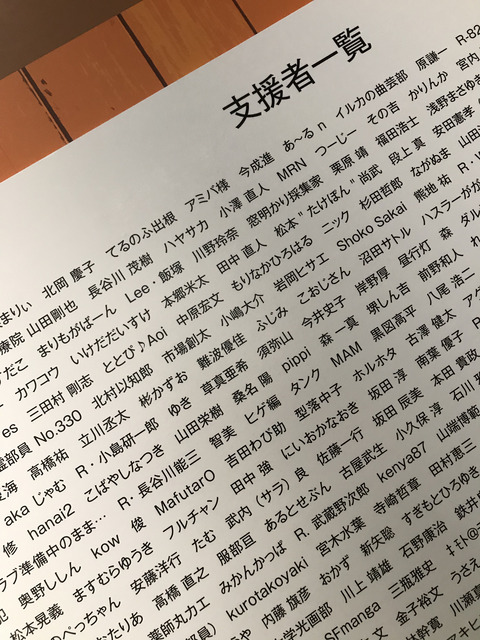 支援者一覧
まりぃ 北岡 慶子 てるのふ出根 アミバ様 今成進 あ〜る n イルカの曲芸部 原謙一 R-82
療院 山田剛也 長谷川 茂樹 ハヤサカ 小澤 直人 MRN つーじー その吉 かりんか 宮内
だこ まりもがばーん Lee・飯塚 川野怜奈 窓明かり採集家 栗原 靖 福田浩士 浅野まさゆき
カワコウ いけただいすけ 本郷米太 田中 直人 松本"たけぽん"尚武 段上 真 安田憲孝
es 三田村 剛志 ととび♪Aoi 中原宏文 もりなかひろはる ニック 杉田哲郎 ながぬま 山田
霊部員 No.330 北村以知郎 市場創太 小嶋大介 岩岡ヒサエ Shoko Sakai 熊地 祐 R・
良海 高橋祐 立川丞太 彬かずお 難波優住 ふじみ こおじさん 沼田サトル ハスラーがが
aka じゃむ R・小島研一郎 ゆき 草真亜希 須弥山 今井史子 岸野厚 昼行灯 森 ダル
修 hanai2 こばやしなつき 山田栄樹 桑名 陽 pippi 森 一真 堺しん吉 前野和人
ラブ準備中のまま… R・長谷川能三 智美 ヒゲ編 タンク MAM 黒図高平 八尾 浩二
奥野ししん kow 俊 MafutarO 吉田わび助 型落中子 ホルホタ 古澤 健太 アゲ
松本晃義 ますむらゆうき フルチャン 田中 強 にいおかなおき 坂田 淳 南葉 優子
のぺっちゃん 安藤洋行 たむ 武内（サラ）良 佐藤一行 坂田 辰美 本田 貴政
おなたりあ 高橋 直之 服部亘 あるとせぶん 古屋武生 小久保 淳 石川
薬師丸カエ みかんかっぱ R. 武蔵野次郎 kenya87 山端博範
部員） kurotakoyaki 宮木水葉 寺崎哲章 田村恵三
内藤 旗彦 おかず 新矢聡 すぎもとひろゆき
光学光画部 川上 靖雄 石野康治 鉄井
SFmanga 三瓶雅史
金子裕文 うさえ
寛 川瀬